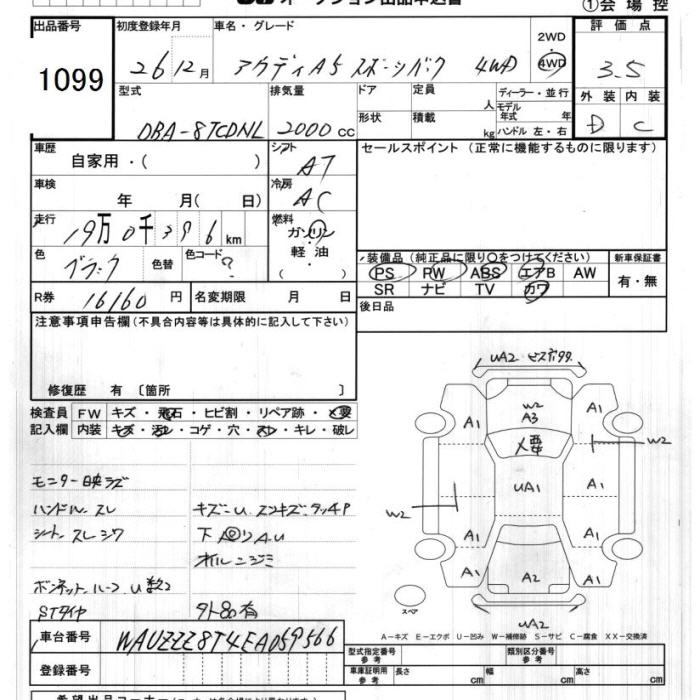 ①会場控
出品番号
1099
初度登録年月
26 12月
車名・グレード
アウディA5 スポーツバック 4WD
2WD
4WD
評価点
3.5
外装 内装
D C
型式
DBA-8TCDNL
排気量
2000 cc
ドア
形状
定員
人
積載
kg
ディーラー・並行
モデル年式 年
ハンドル 左・右
車歴
自家用・( )
シフト
AT
セールスポイント (正常に機能するものに限ります)
車検
年 月( 日)
冷房
AC
走行
19万0千396km
燃料
ガソリン
軽油
( )
色
ブラック
色替
色コード
?
装備品(純正品に限り○をつけてください)
PS PW ABS エアB AW
SR ナビ TV カワ
新車保証書
有・無
R券
16160円
名変期限 月 日
後日品
注意事項申告欄(不具合内容等は具体的に記入して下さい)
修復歴 有 〔箇所 〕
検査員記入欄
FW キズ・飛石・ヒビ割・リペア跡・×要
内装 キズ・汚レ・コゲ・穴・スレ・キレ・破レ
モニター映ラズ
ハンドル スレ
シート スレ シワ
ボンネット ルーフ U 数2
STタイヤ
キズ-U スンキズ タッチP
下回リ A.U
オルニジミ
外品有
UA2
W2
A3
×要
A1
A1
W2
A1
UA1
A1
W2
A1
A1
A1
A2
A1
UA2
スペア
A-キズ E-エクボ U-凹み W-補修跡 S-サビ C-腐食 XX-交換済
車台番号
WAUZZZ8T4EA059566
登録番号
型式指定番号
参考
類別区分番号
参考
車庫証明用
参考
長さ cm 幅 cm 高さ cm